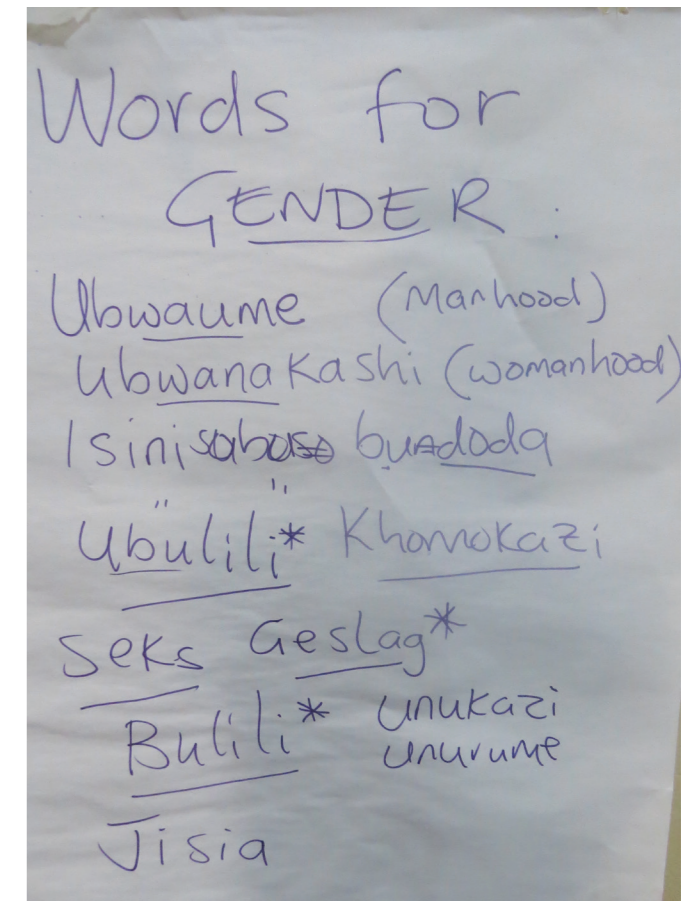 Words for
GENDER :
Ubwaume (Manhood)
Ubwanakashi (womanhood)
Isini bundoda
" "
Ubulili* Khomokazi
Seks Geslag*
Bulili* unukazi
unurume
Jisia